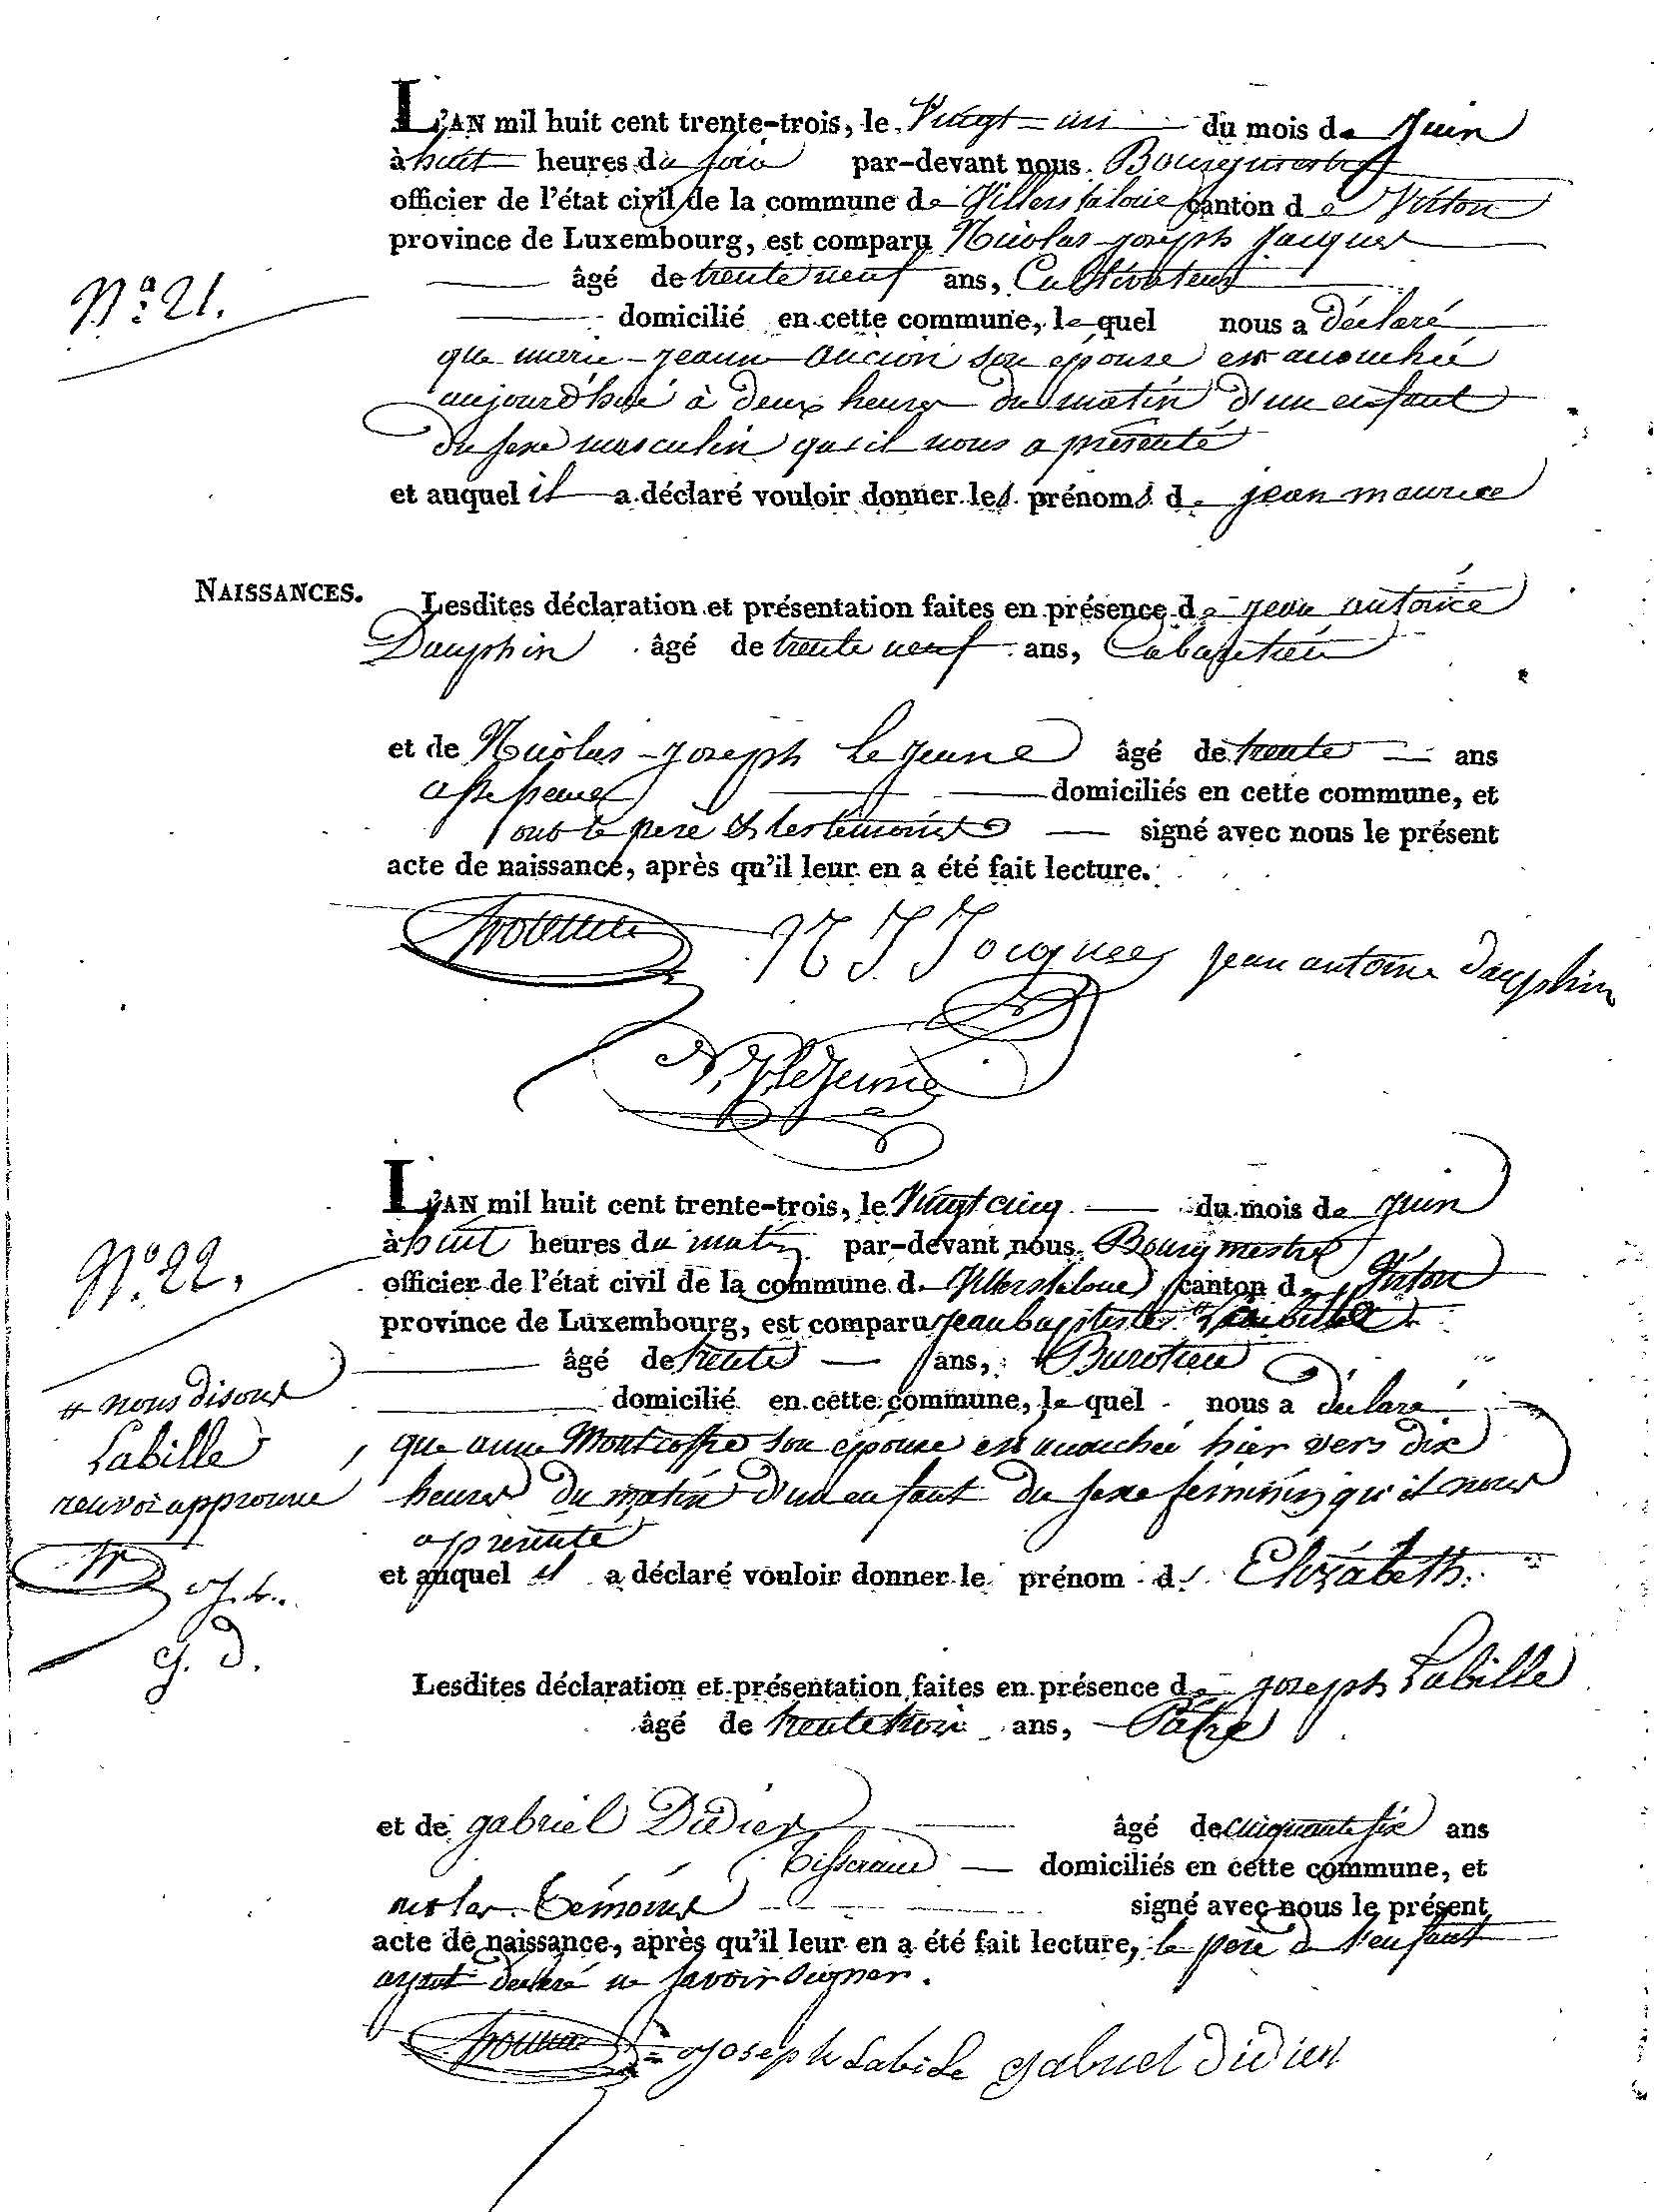 L'AN mil huit cent trente-trois, le Vingt-un du mois de Juin
à huit heures du soir par-devant nous Bourgmestre
officier de l'état civil de la commune de Villers sa loue canton de Virton
province de Luxembourg, est comparu Nicolas-Joseph Jacques
N° 21.
âgé de trente neuf ans, Cultivateur
domicilié en cette commune, lequel nous a déclaré
que marie-jeanne son épouse est accouchée
aujourd'hui à deux heures du matin d'un enfant
du sexe masculin qu'il nous a présenté
et auquel il a déclaré vouloir donner les prénoms de jean maurice
NAISSANCES.
Lesdites déclaration et présentation faites en présence de jean antoine
Dauphin âgé de trente neuf ans, Cabaretier
et de Nicolas-Joseph LeJeune âgé de trente ans
domiciliés en cette commune, et
ont le père et les témoins signé avec nous le présent
acte de naissance, après qu'il leur en a été fait lecture.
N J Jocques jean antoine dauphin
N. J. LeJeune
L'AN mil huit cent trente-trois, le Vingt cinq du mois de juin
à huit heures du matin par-devant nous Bourgmestre
N° 22.
officier de l'état civil de la commune de Villers sa loue canton de Virton
province de Luxembourg, est comparu jean baptiste #
âgé de trente ans,
# nous disons
domicilié en cette commune, lequel nous a déclaré
Labille
que anne Montcoffre son épouse est accouchée hier vers dix
renvoi approuvé
heures du matin d'un enfant du sexe féminin qu'il nous
a présenté
et auquel il a déclaré vouloir donner le prénom d' Elizabeth.
J. L.
J. D.
Lesdites déclaration et présentation faites en présence de joseph Labille
âgé de trente trois ans, Pâtre
et de gabriel Didier âgé de cinquante six ans
Tisserand domiciliés en cette commune, et
ont les témoins signé avec nous le présent
acte de naissance, après qu'il leur en a été fait lecture, le père de l'enfant
ayant déclaré ne savoir signer.
Joseph Labile gabriel didier